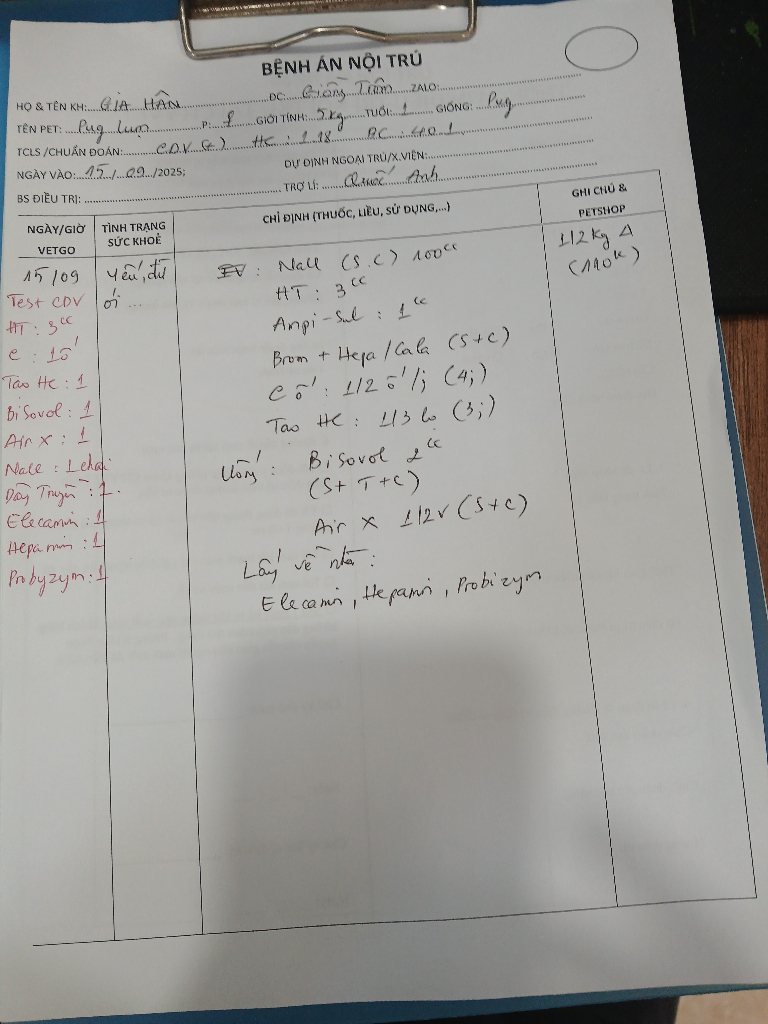 BỆNH ÁN NỘI TRÚ
HỌ & TÊN KH: GIA HÂN ĐC: Giồng Trôm ZALO:
TÊN PET: Pug lum P: GIỚI TÍNH: 5kg TUỔI: 1 GIỐNG: Pug
TCLS /CHUẨN ĐOÁN: CDV HC : 1.18 BC : 40.1
NGÀY VÀO: 15/ 09 /2025; DỰ ĐỊNH NGOẠI TRÚ/X.VIÊN:
BS ĐIỀU TRỊ: TRỢ LÍ: Quốc Anh
NGÀY/GIỜ VETGO TÌNH TRẠNG SỨC KHOẺ CHỈ ĐỊNH (THUỐC, LIỀU, SỬ DỤNG,...) GHI CHÚ & PETSHOP
15/09 Yếu, đừ ói ...
Test CDV
HT : 3cc
C : 1ố
Tao HC : 1
BiSovol : 1
Air X : 1
Nacl : 1 chai
Dây Truyền : 1.
Elecamin : 1
Hepamin : 1
Probyzym : 1
IV : Nacl (S.C) 100cc
HT : 3cc
Ampi-Sul : 1cc
Brom + Hepa/Cala (S+C)
C ố : 1/2 ố/j (4j)
Tao HC : 1/3 lo (3j)
Uống : BiSovol 2cc
(S+ T+C)
Air X 1/2v (S+C)
Lấy về nhà :
Elecamin, Hepamin, Probizym
1/2kg Δ
(110k)